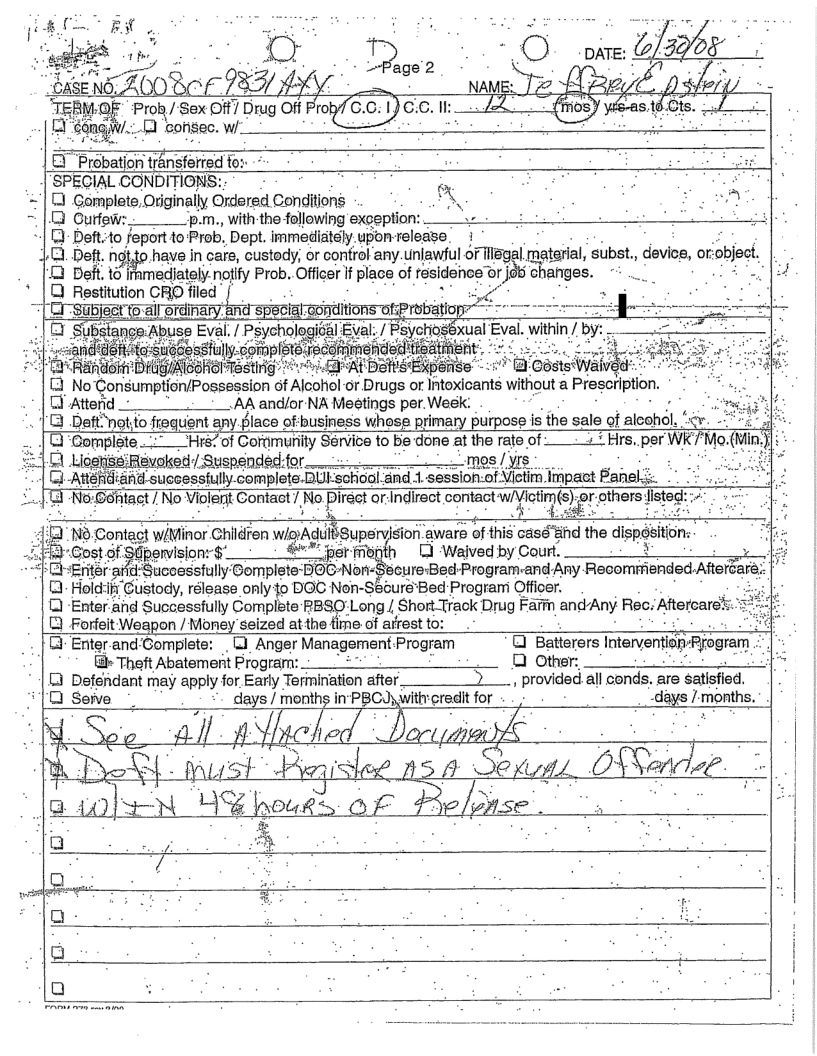 Page 2
DATE: 6/30/08
CASE NO. 2008CF9831AXY NAME: Jeffrey Epstein
TERM OF Prob / Sex Off / Drug Off Prob / C.C. I / C.C. II: 12 mos / yrs as to Cts. 1
☐ conc w/ ☐ consec. w/
☐ Probation transferred to:
SPECIAL CONDITIONS:
☐ Complete Originally Ordered Conditions
☐ Curfew: p.m., with the following exception:
☐ Deft. to report to Prob. Dept. immediately upon release
☐ Deft. not to have in care, custody, or control any unlawful or illegal material, subst., device, or object.
☐ Deft. to immediately notify Prob. Officer if place of residence or job changes.
☐ Restitution CRO filed
☐ Subject to all ordinary and special conditions of Probation
☐ Substance Abuse Eval. / Psychological Eval. / Psychosexual Eval. within / by:
and deft. to successfully complete recommended treatment
☐ Random Drug/Alcohol Testing ☐ At Deft's Expense ☐ Costs Waived
☐ No Consumption/Possession of Alcohol or Drugs or Intoxicants without a Prescription.
☐ Attend AA and/or NA Meetings per Week.
☐ Deft. not to frequent any place of business whose primary purpose is the sale of alcohol.
☐ Complete Hrs. of Community Service to be done at the rate of Hrs. per Wk / Mo.(Min.)
☐ License Revoked / Suspended for mos / yrs
☐ Attend and successfully complete DUI school and 1 session of Victim Impact Panel
☐ No Contact / No Violent Contact / No Direct or Indirect contact w/Victim(s) or others listed:
☐ No Contact w/Minor Children w/o Adult Supervision aware of this case and the disposition.
☐ Cost of Supervision: $ per month ☐ Waived by Court.
☐ Enter and Successfully Complete DOC Non-Secure Bed Program and Any Recommended Aftercare.
☐ Hold in Custody, release only to DOC Non-Secure Bed Program Officer.
☐ Enter and Successfully Complete PBSO Long / Short Track Drug Farm and Any Rec. Aftercare.
☐ Forfeit Weapon / Money seized at the time of arrest to:
☐ Enter and Complete: ☐ Anger Management Program ☐ Batterers Intervention Program
☐ Theft Abatement Program: ☐ Other:
☐ Defendant may apply for Early Termination after , provided all conds. are satisfied.
☐ Serve days / months in PBCJ, with credit for days / months.
See All Attached Documents
Deft must Register AS A Sexual Offender
W/IN 48 hours OF Release.